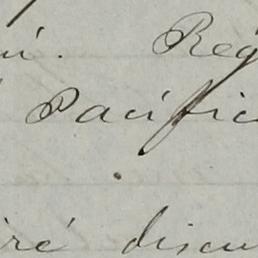 ui. Rég
Pacific
iré discu